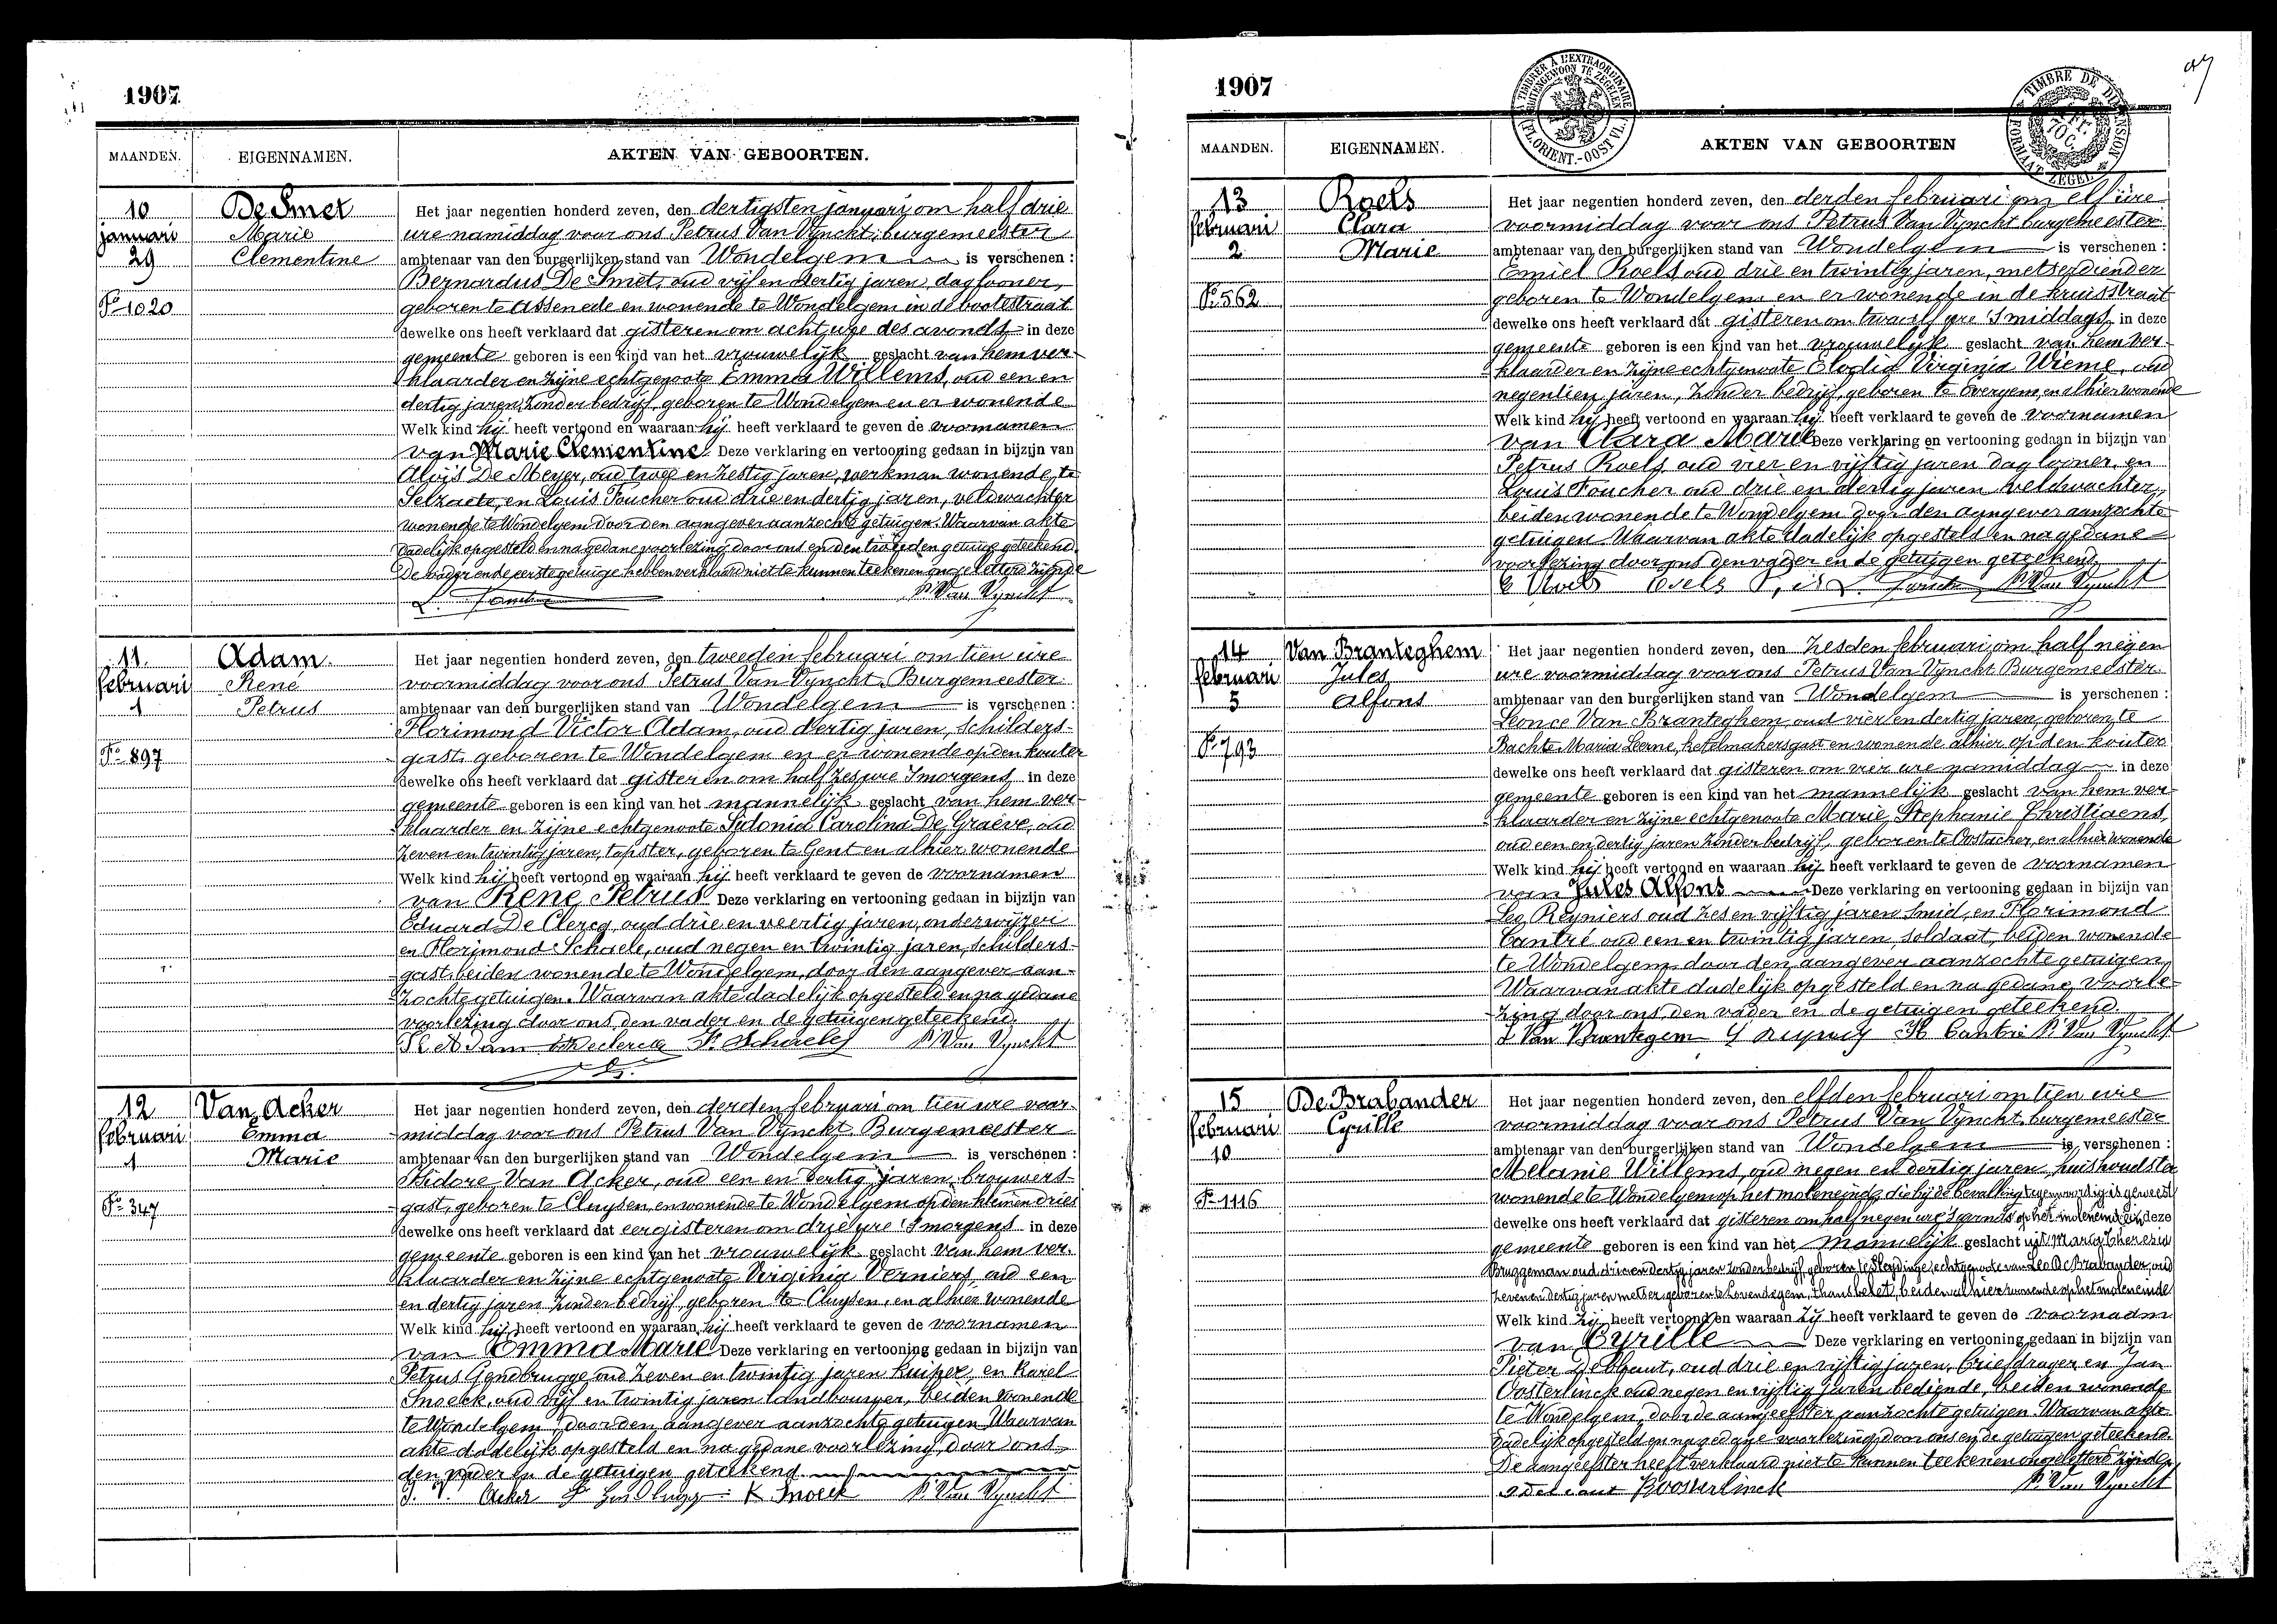 1907
MAANDEN.
EIGENNAMEN.
AKTEN VAN GEBOORTEN.
10
januari
29
Fo 1020
De Smet
Marie
Clementine
Het jaar negentien honderd zeven, den dertigsten januari om half drie
ure namiddag voor ons Petrus Van Vynckt, burgemeester
ambtenaar van den burgerlijken stand van Wondelgem is verschenen :
Bernardus De Smet, oud vijf en dertig jaren, daglooner,
geboren te Assenede en wonende te Wondelgem in de bootestraat
dewelke ons heeft verklaard dat gisteren om acht ure des avonds in deze
gemeente geboren is een kind van het vrouwelijk geslacht van hem ver-
klaarder en zijne echtgenoote Emma Willems, oud een en
dertig jaren, zonder bedrijf, geboren te Wondelgem en er wonende
Welk kind hij heeft vertoond en waaraan hij heeft verklaard te geven de voornamen
van Marie Clementine. Deze verklaring en vertooning gedaan in bijzijn van
Aloïs De Meyer, oud twee en zestig jaren, werkman wonende te
Selzaete, en Louis Foucher oud drie en dertig jaren, veldwachter
wonende te Wondelgem door den aangever aanzochte getuigen. Waarvan akte
dadelijk opgesteld en na gedane voorlezing door ons en den tweeden getuige geteekend.
De vader en de eerste getuige hebben verklaard niet te kunnen teekenen ongeletterd zijnde
L. Foucher P. Van Vynckt
11.
februari
1
Fo 897
Adam.
René
Petrus
Het jaar negentien honderd zeven, den tweeden februari om tien ure
voormiddag voor ons Petrus Van Vynckt, Burgemeester
ambtenaar van den burgerlijken stand van Wondelgem is verschenen :
Florimond Victor Adam, oud dertig jaren, schilders-
gast, geboren te Wondelgem en er wonende op den kouter
dewelke ons heeft verklaard dat gisteren om half zes ure 'smorgens in deze
gemeente geboren is een kind van het mannelijk geslacht van hem ver-
klaarder en zijne echtgenoote Sidonia Carolina De Graeve, oud
zeven en twintig jaren, tapster, geboren te Gent en alhier wonende
Welk kind hij heeft vertoond en waaraan hij heeft verklaard te geven de voornamen
van René Petrus Deze verklaring en vertooning gedaan in bijzijn van
Eduard De Clercq oud drie en veertig jaren, onderwijzer
en Florimond Schaele, oud negen en twintig jaren, schilders-
gast, beiden wonende te Wondelgem, door den aangever aan-
zochte getuigen. Waarvan akte dadelijk opgesteld en na gedane
voorlezing door ons, den vader en de getuigen geteekend.
Adam Declercq P. Van Vynckt
12
februari
1
Fo 347
Van Acker
Emma
Marie
Het jaar negentien honderd zeven, den derden februari om tien ure voor-
middag voor ons Petrus Van Vynckt, Burgemeester
ambtenaar van den burgerlijken stand van Wondelgem is verschenen :
Isidore Van Acker, oud een en dertig jaren, brouwers-
gast, geboren te Cluysen, en wonende te Wondelgem op den kleinen dries
dewelke ons heeft verklaard dat eergisteren om drie ure 'smorgens in deze
gemeente geboren is een kind van het vrouwelijk geslacht van hem ver-
klaarder en zijne echtgenoote Virginia Verniers, oud een
en dertig jaren zonder bedrijf, geboren te Cluysen, en alhier wonende
Welk kind hij heeft vertoond en waaraan hij heeft verklaard te geven de voornamen
van Emma Marie Deze verklaring en vertooning gedaan in bijzijn van
Petrus Gendbrugge oud zeven en twintig jaren kuiper, en Karel
Snoeck, oud vijf en twintig jaren landbouwer, beiden wonende
te Wondelgem, door den aangever aanzochte getuigen. Waarvan
akte dadelijk opgesteld en na gedane voorlezing, door ons,
den vader en de getuigen geteekend.
Acker K. Snoeck P. Van Vynckt
1907
MAANDEN.
EIGENNAMEN.
AKTEN VAN GEBOORTEN
A TIMBRER A L'EXTRAORDINAIRE
BUITENGEWOON TE ZEGELEN
FL. ORIENT.-OOST VL.
TIMBRE DE DIMENSION
FORMAAT ZEGEL
13
februari
2
Fo 562
Roels
Clara
Marie
Het jaar negentien honderd zeven, den derden februari om elf ure
voormiddag voor ons Petrus Van Vynckt burgemeester
ambtenaar van den burgerlijken stand van Wondelgem is verschenen :
Emiel Roels oud drie en twintig jaren, metserdiender
geboren te Wondelgem en er wonende in de kruisstraat
dewelke ons heeft verklaard dat gisteren om twaalf ure 'smiddags in deze
gemeente geboren is een kind van het vrouwelijk geslacht van hem ver-
klaarder en zijne echtgenoote Elodia Virginia Wieme, oud
negentien jaren, zonder bedrijf, geboren te Evergem, en alhier wonende
Welk kind hij heeft vertoond en waaraan hij heeft verklaard te geven de voornamen
van Clara Marie Deze verklaring en vertooning gedaan in bijzijn van
Petrus Roels oud vier en vijftig jaren daglooner, en
Louis Foucher oud drie en dertig jaren veldwachter,
beiden wonende te Wondelgem door den aangever aanzochte
getuigen. Waarvan akte dadelijk opgesteld en na gedane
voorlezing door ons den vader en de getuigen geteekend.
E Roels Roels P. L. Foucher P. Van Vynckt
14
februari
5
Fo 793
Van Branteghem
Jules
Alfons
Het jaar negentien honderd zeven, den zesden februari om half negen
ure voormiddag voor ons Petrus Van Vynckt Burgemeester
ambtenaar van den burgerlijken stand van Wondelgem is verschenen :
Leonce Van Branteghem, oud vier en dertig jaren, geboren te
Bachte Maria Leerne, ketelmakersgast en wonende alhier op den kouter
dewelke ons heeft verklaard dat gisteren om vier ure namiddag in deze
gemeente geboren is een kind van het mannelijk geslacht van hem ver-
klaarder en zijne echtgenoote Marie Stephanie Christiaens,
oud een en dertig jaren zonder bedrijf, geboren te Oostacker, en alhier wonende
Welk kind hij heeft vertoond en waaraan hij heeft verklaard te geven de voornamen
van Jules Alfons Deze verklaring en vertooning gedaan in bijzijn van
Leo Reyniers oud zes en vijftig jaren smid, en Florimond
Cantré oud een en twintig jaren, soldaat, beiden wonende
te Wondelgem, door den aangever aanzochte getuigen,
Waarvan akte dadelijk opgesteld en na gedane voorle-
zing door ons, den vader en de getuigen geteekend.
L Van Brantegem Cantré P. Van Vynckt
15
februari
10
Fo 1116
De Brabander
Cyrille
Het jaar negentien honderd zeven, den elfden februari om tien ure
voormiddag voor ons Petrus Van Vynckt, burgemeester
ambtenaar van den burgerlijken stand van Wondelgem is verschenen :
Melanie Willems, oud negen en dertig jaren, huishoudster
wonende te Wondelgem op het moleneinde, die bij de bevalling tegenwoordig is geweest
dewelke ons heeft verklaard dat gisteren om half negen ure 's avonds op het moleneinde in deze
gemeente geboren is een kind van het mannelijk geslacht uit Maria Theresia
Bruggeman oud drie en dertig jaren zonder bedrijf, geboren te Sleydinge, echtgenoote van Leo De Brabander, oud
zeven en dertig jaren metser, geboren te Lovendegem, thans belet, beiden alhier wonende op het moleneinde
Welk kind zij heeft vertoond en waaraan zij heeft verklaard te geven de voornaam
van Cyrille Deze verklaring en vertooning gedaan in bijzijn van
Pieter oud drie en vijftig jaren, briefdrager en Jan
Oosterlinck oud negen en vijftig jaren bediende, beiden wonende
te Wondelgem, door de aangeefster aanzochte getuigen. Waarvan akte
dadelijk opgesteld en na gedane voorlezing, door ons en de getuigen geteekend.
De aangeefster heeft verklaard niet te kunnen teekenen ongeletterd zijnde.
P. Van Vynckt